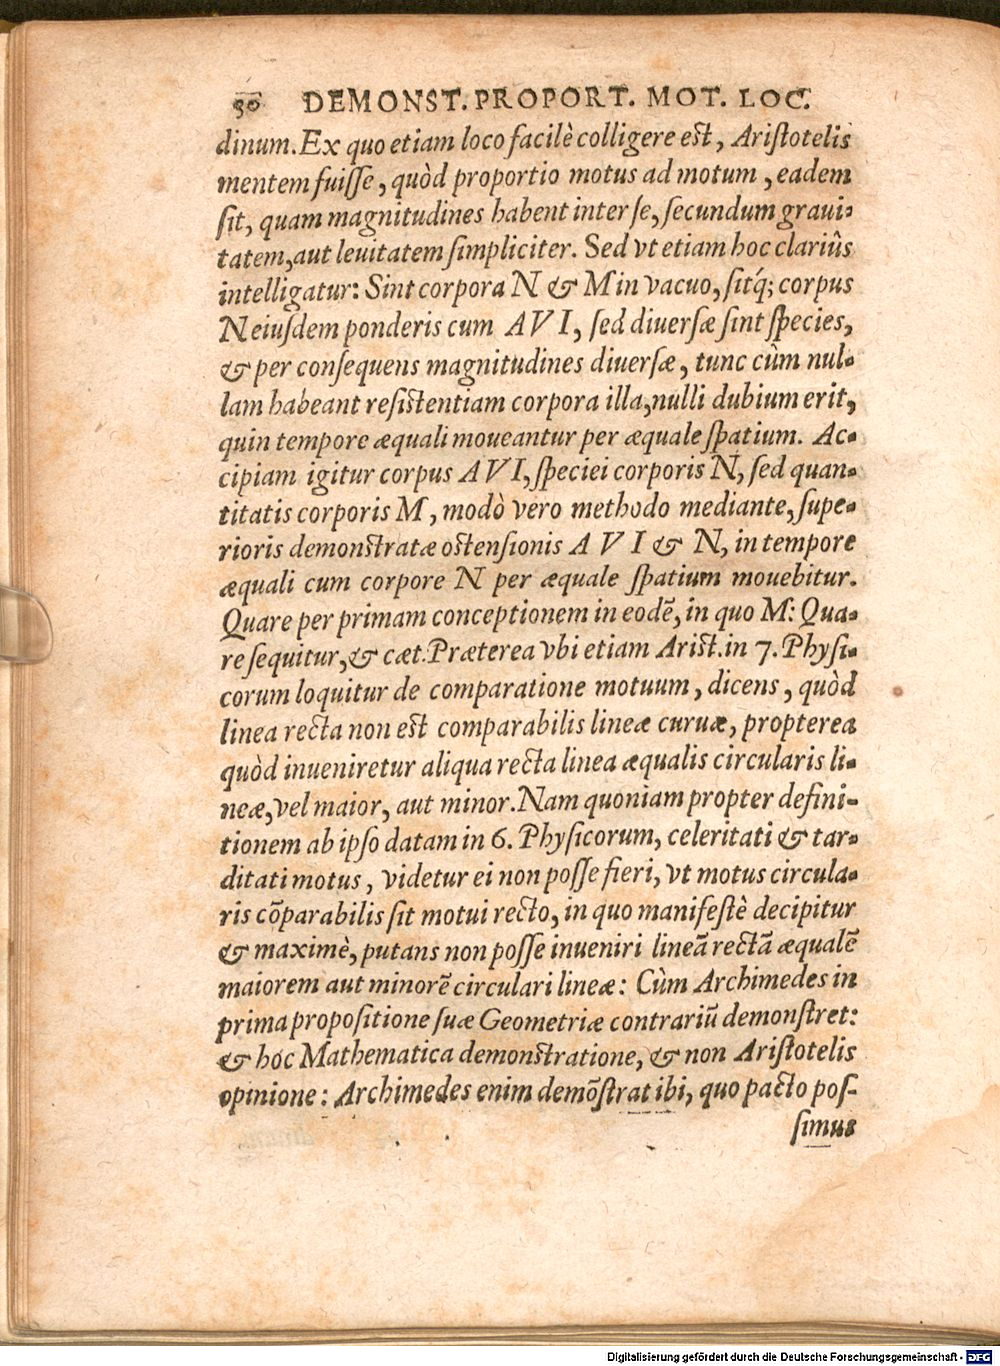 50 DEMONST. PROPORT. MOT. LOC.
dinum. Ex quo etiam loco facilè colligere est, Aristotelis
mentem fuisse, quòd proportio motus ad motum, eadem
sit, quam magnitudines habent inter se, secundum graui-
tatem, aut leuitatem simpliciter. Sed vt etiam hoc clariùs
intelligatur: Sint corpora N & M in vacuo, sitq́; corpus
N eiusdem ponderis cum AVI, sed diuersæ sint species,
& per consequens magnitudines diuersæ, tunc cùm nul-
lam habeant resistentiam corpora illa, nulli dubium erit,
quin tempore æquali moueantur per æquale spatium. Ac-
cipiam igitur corpus AVI, speciei corporis N, sed quan-
titatis corporis M, modò vero methodo mediante, supe-
rioris demonstratæ ostensionis A V I & N, in tempore
æquali cum corpore N per æquale spatium mouebitur.
Quare per primam conceptionem in eodē, in quo M: Qua-
re sequitur, & cæt. Præterea vbi etiam Arist. in 7. Physi-
corum loquitur de comparatione motuum, dicens, quòd
linea recta non est comparabilis lineæ curuæ, propterea
quòd inueniretur aliqua recta linea æqualis circularis li-
neæ, vel maior, aut minor. Nam quoniam propter defini-
tionem ab ipso datam in 6. Physicorum, celeritati & tar-
ditati motus, videtur ei non posse fieri, vt motus circula-
ris cōparabilis sit motui recto, in quo manifestè decipitur
& maximè, putans non posse inueniri lineā rectā æqualē
maiorem aut minorē circulari lineæ: Cùm Archimedes in
prima propositione suæ Geometriæ contrariū demonstret:
& hoc Mathematica demonstratione, & non Aristotelis
opinione: Archimedes enim demōstrat ibi, quo pacto pos-
simus
Digitalisierung gefördert durch die Deutsche Forschungsgemeinschaft - DFG